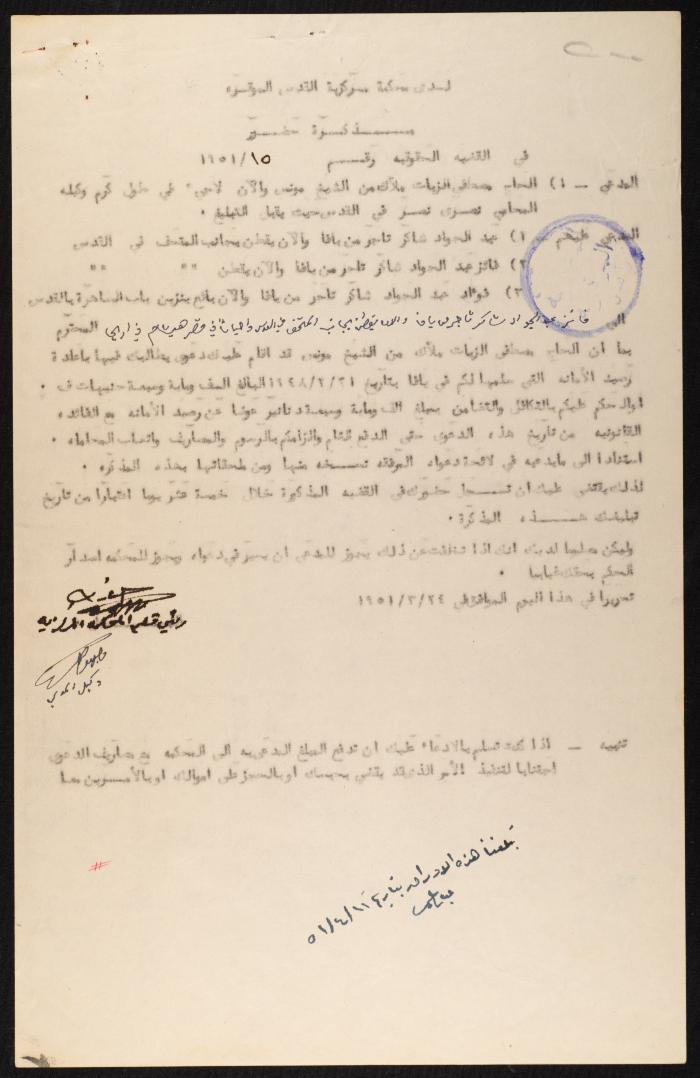 لدى محكمة مركزية القدس الموقره
مذكرة حضور
في القضيه الحقوقيه رقم ١٩٥١/١٥
المدعي – ١) الحاج مصطفى الزيات ملاك من الشيخ مونس والآن لاجيء في طول كرم وكيله
المحامي نصري نصر في القدس حيث يقبل التبليغ .
المدعى عليهم – ١) عبد الجواد شاكر تاجر من يافا والآن يقطن بجانب المتحف في القدس
٢) فائز عبد الجواد شاكر تاجر من يافا والآن يقطن " " " "
٣) فوءاد عبد الجواد شاكر تاجر من يافا والآن بائع بنزين باب الساهرة بالقدس
الى فائز عبد الجواد شاكر تاجر من يافا والان يقطن بجانب المتحف في القدس واحياناً في قصر هشام في اريحا المحترم
بما ان الحاج مصطفى الزيات ملاك من الشيخ مونس قد اقام عليك دعوى يطالبك فيها باعادة
رصيد الأمانه التي سلمها لكم في يافا بتاريخ ١٩٤٨/٢/٢١ البالغ الف وماية وسبعة جنيهات ف .
اوالحكم عليكم بالتكافل والتضامن بمبلغ الف وماية وسبعة دنانير عوضا عن رصيد الأمانه مع الفائده
القانونيه من تاريخ هذه الدعوى حتى الدفع التام والزامكم بالرسوم والمصاريف واتعاب المحاماه .
استنادا الى مايدعيه في لائحة دعواه المرفقه نسخه منها ومن ملحقاتها بهذه المذكره .
لذلك يقتضي عليك ان تسجل حضورك في القضيه المذكورة خلال خمسة عشر يوما اعتبارا من تاريخ
تبليغك هذه المذكرة .
وليكن معلوما لديك انك اذا تخلفت عن ذلك يجوز للمدعي ان يسير في دعواه ويجوز للمحكمه اصدار
الحكم بحقك غيابيا .
تحريرا في هذا اليوم الموافق في ١٩٥١/٣/٢٤
رئيس قلم المحكمه المركزيه
وكيل المدعي
تنبيه – اذا كنت تسلم بالادعاء عليك ان تدفع المبلغ المدعى به الى المحكمه مع مصاريف الدعوى
اجتنابا لتنفيذ الأمر الذي قد يقضي بحبسك او بالحجز على اموالك او بالأمرين معا
تبلغنا هذه الاوراق بتاريخ ٥١/٤/١١